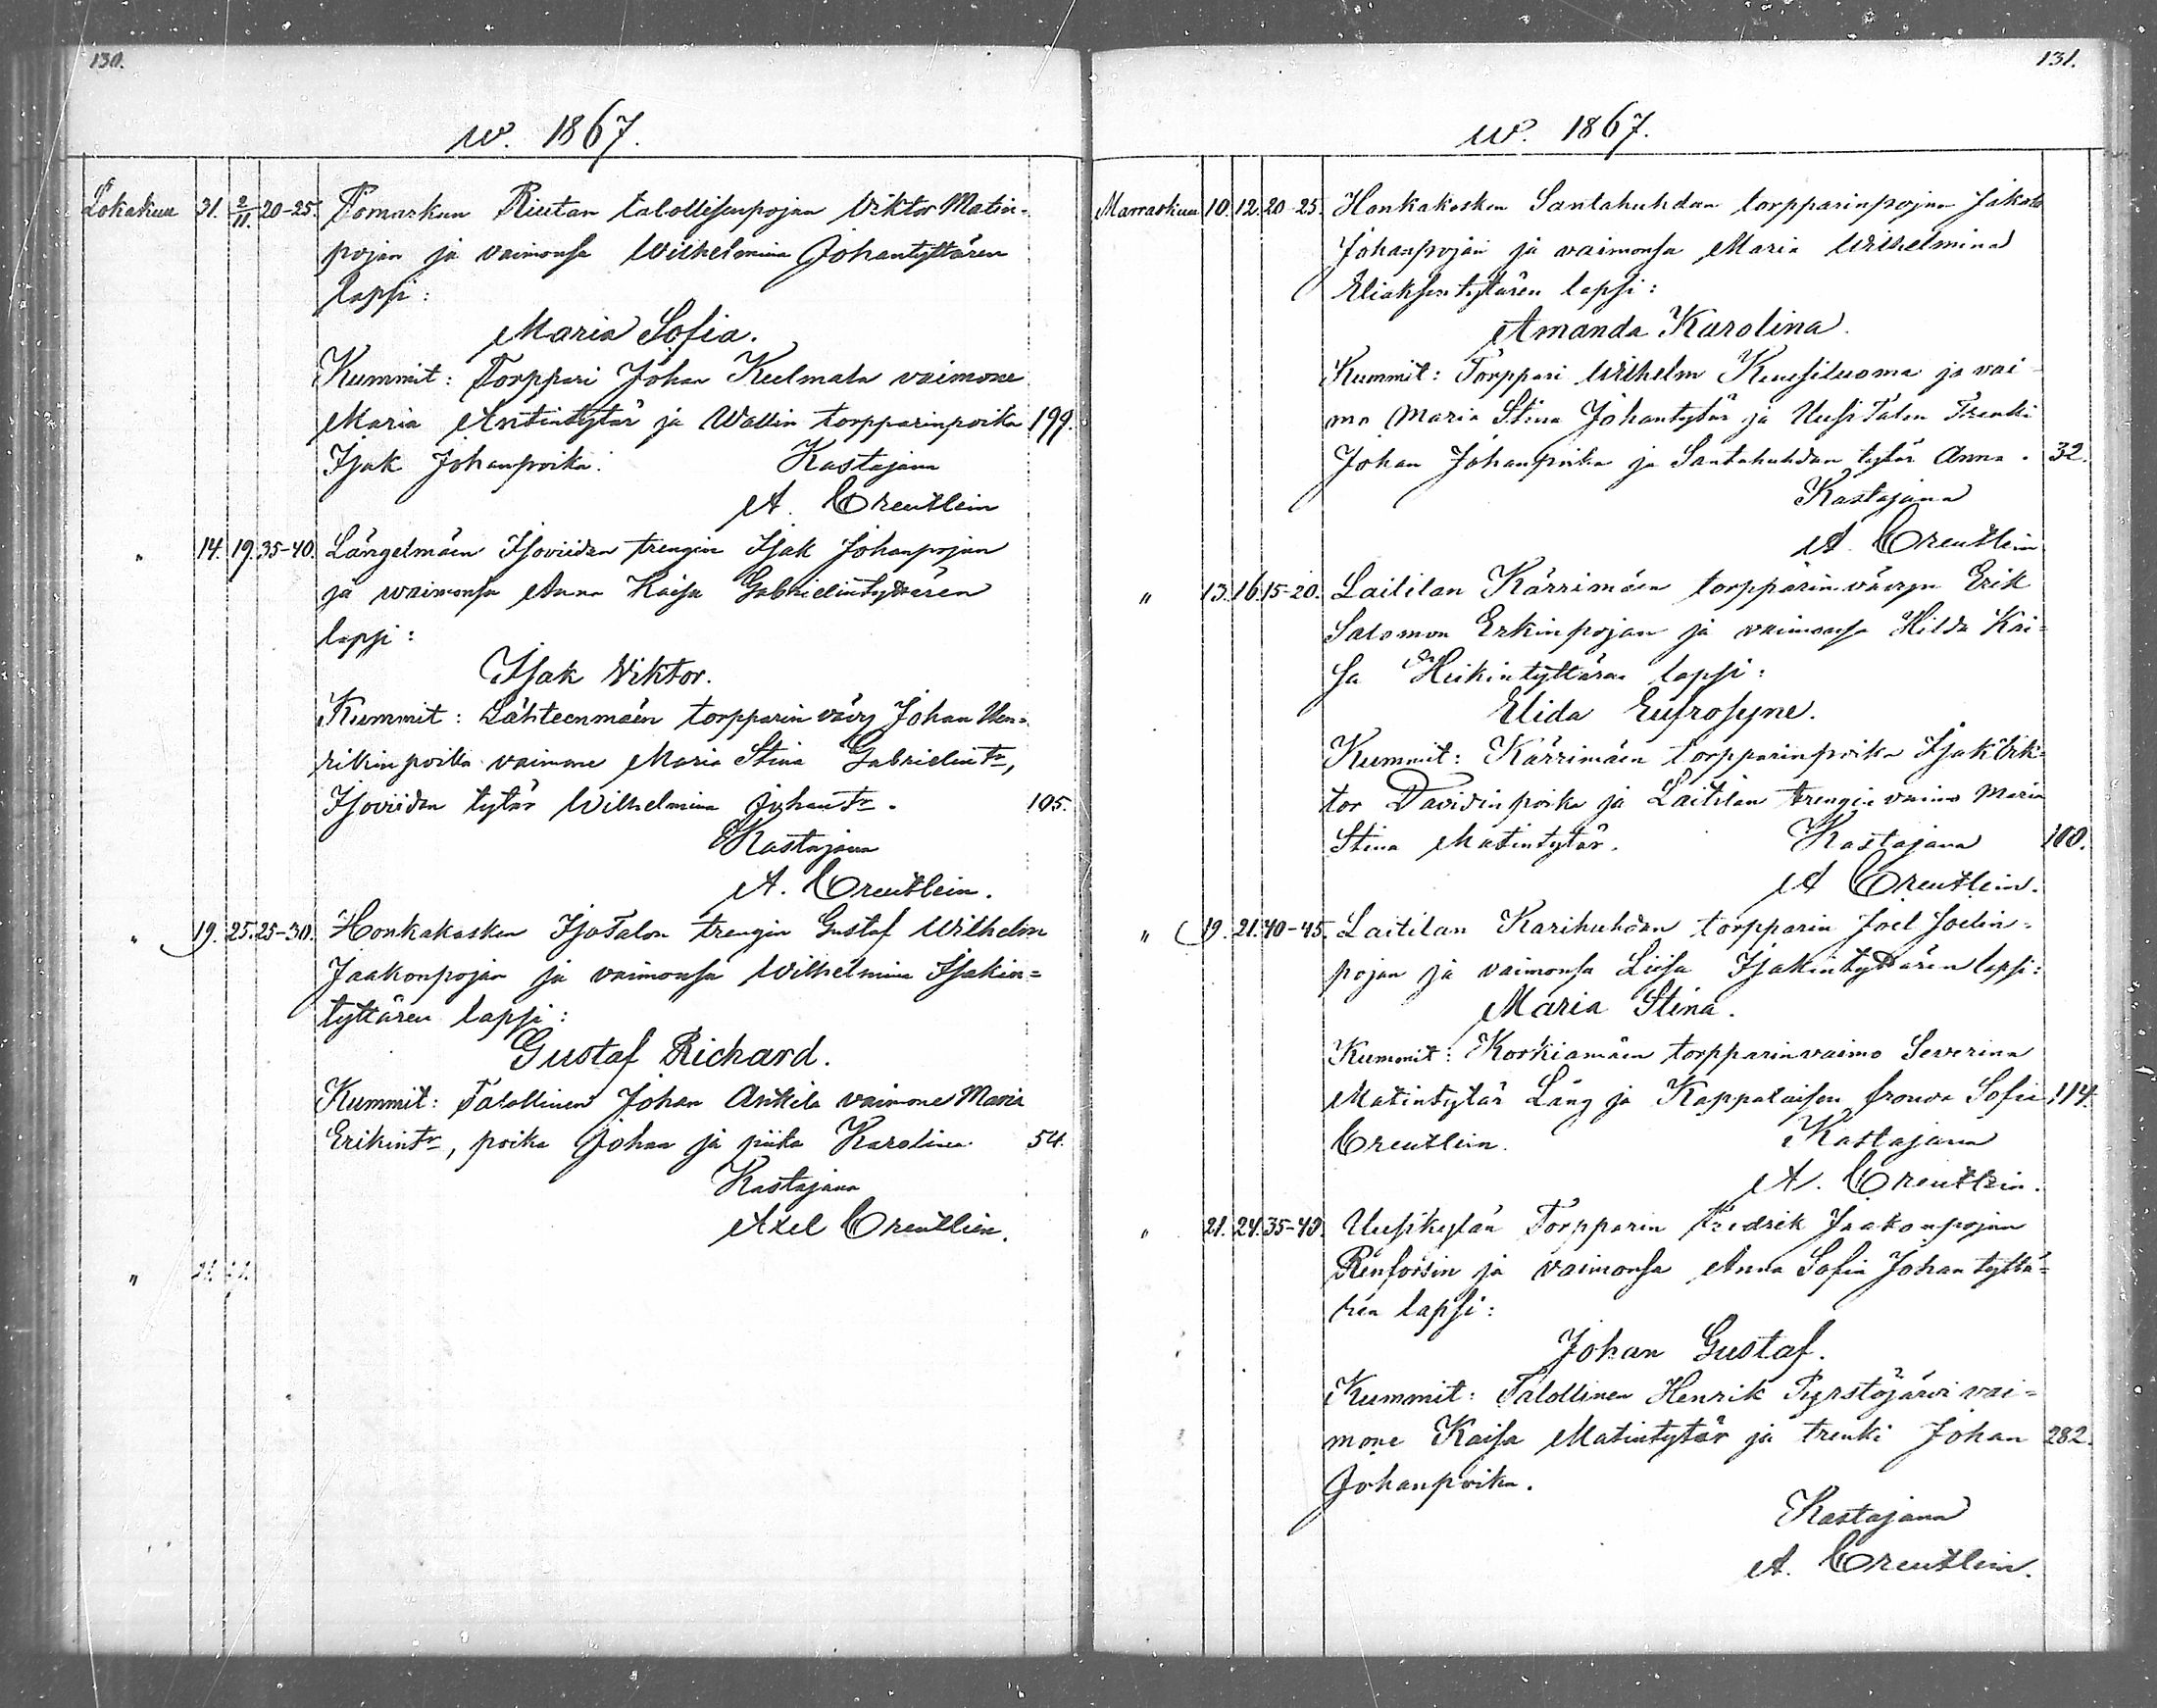 130.
w. 1867.
Lokakuu 31. 2/11. 20-25. Pomarkun Riutan talollisenpojan Viktor Matin-
pojan ja vaimonsa Wilhelmina Johantyttären
lapsi:
Maria Sofia.
Kummit: Torppari Johan Keelmala vaimone
Maria Antintytär ja Wallin torpparinpoika 199.
Isak Johanpoika. Kastajana
A. Creutlein
" 14. 19. 35-40. Längelmäen Isoviidan trengin Isak Johanpojan
ja waimonsa Anna Kaisa Gabrielintyttären
lapsi:
Isak Viktor.
Kummit: Lähteenmäen torpparin vävy Johan Hen-
rikinpoika vaimone Maria Stina Gabrielintr,
Isoviidan tytär Wilhelmina Johantr. 105.
Kastajana
A. Creutlein.
" 19. 25. 25-30. Honkakosken IsoTalon trengin Gustaf Wilhelm
Jaakonpojan ja vaimonsa Wilhelmina Isakin=
tyttären lapsi:
Gustaf Richard.
Kummit: Talollinen Johan Antila vaimone Maria
Erikintr, poika Johan ja piika Karolina 54.
Kastajana
Axel Creutlein.
" 21.
131.
w. 1867.
Marraskuu 10. 12. 20-25. Honkakosken Santahuhdan torpparinpojan Jakob
Johanpojan ja vaimonsa Maria Wilhelmina
Eliaksentytären lapsi:
Amanda Karolina.
Kummit: Torppari Wilhelm ja vai-
mo Maria Stina Johantytär ja UusiTalon Trenki
Johan Johanpoika ja Santahuhdan tytär Anna. 32.
Kastajana
A. Creutlein
" 13. 16. 15-20. Laitilan Kärrimäen torpparinvävyn Erik
Salomon Erkinpojan ja vaimonsa Hilda Kai=
sa Heikintyttären lapsi:
Elida Eufrosyne.
Kummit: Kärrimäen torpparinpoika Isak Vik=
tor Davidinpoika ja Laitilan trengin vaimo Maria
Stina Matintytär. Kastajana 100.
A Creutlein.
" 19. 21. 40-45. Laitilan Karihuhdan torpparin Joel Joelin=
pojan ja vaimonsa Liisa Isakintyttären lapsi:
Maria Stina.
Kummit: Korkiamäen torpparinvaimo Severina
Matintytär Läng ja Kappalaisen frouva Sofia 114.
Creutlein. Kastajana
A. Creutlein.
" 21. 24. 35-40. Uusikylän Torpparin Fredrik Jaakonpojan
Renforsin ja vaimonsa Anna Sofia Johan tyttä=
ren lapsi:
Johan Gustaf.
Kummit: Talollinen Henrik Pyrstöjärvi vai=
mone Kaisa Matintytär ja trenki Johan 282.
Johanpoika.
Kastajana
A. Creutlein.